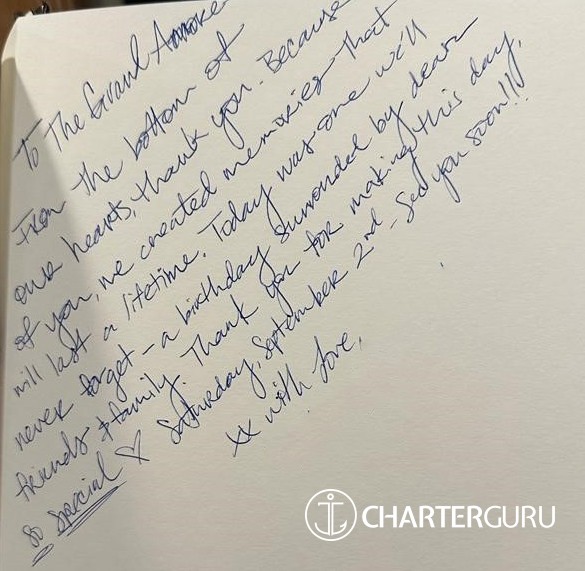 To The Grand Amore
From the bottom of
our hearts, thank you. Because
of you, we created memories that
will last a lifetime. Today was one we'll
never forget - a birthday surrounded by dear
friends & family. Thank you for making this day,
so special ♡ Saturday, September 2nd - See you soon!!!
xx with love,
CHARTERGURU